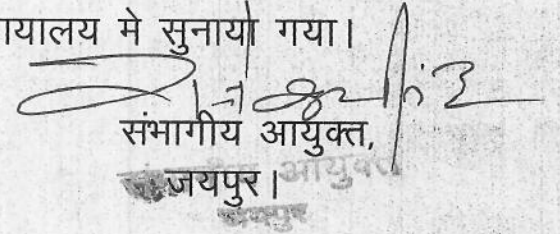 यालय मे सुनाया गया।
संभागीय आयुक्त,
जयपुर।
आयुक्त
जयपुर